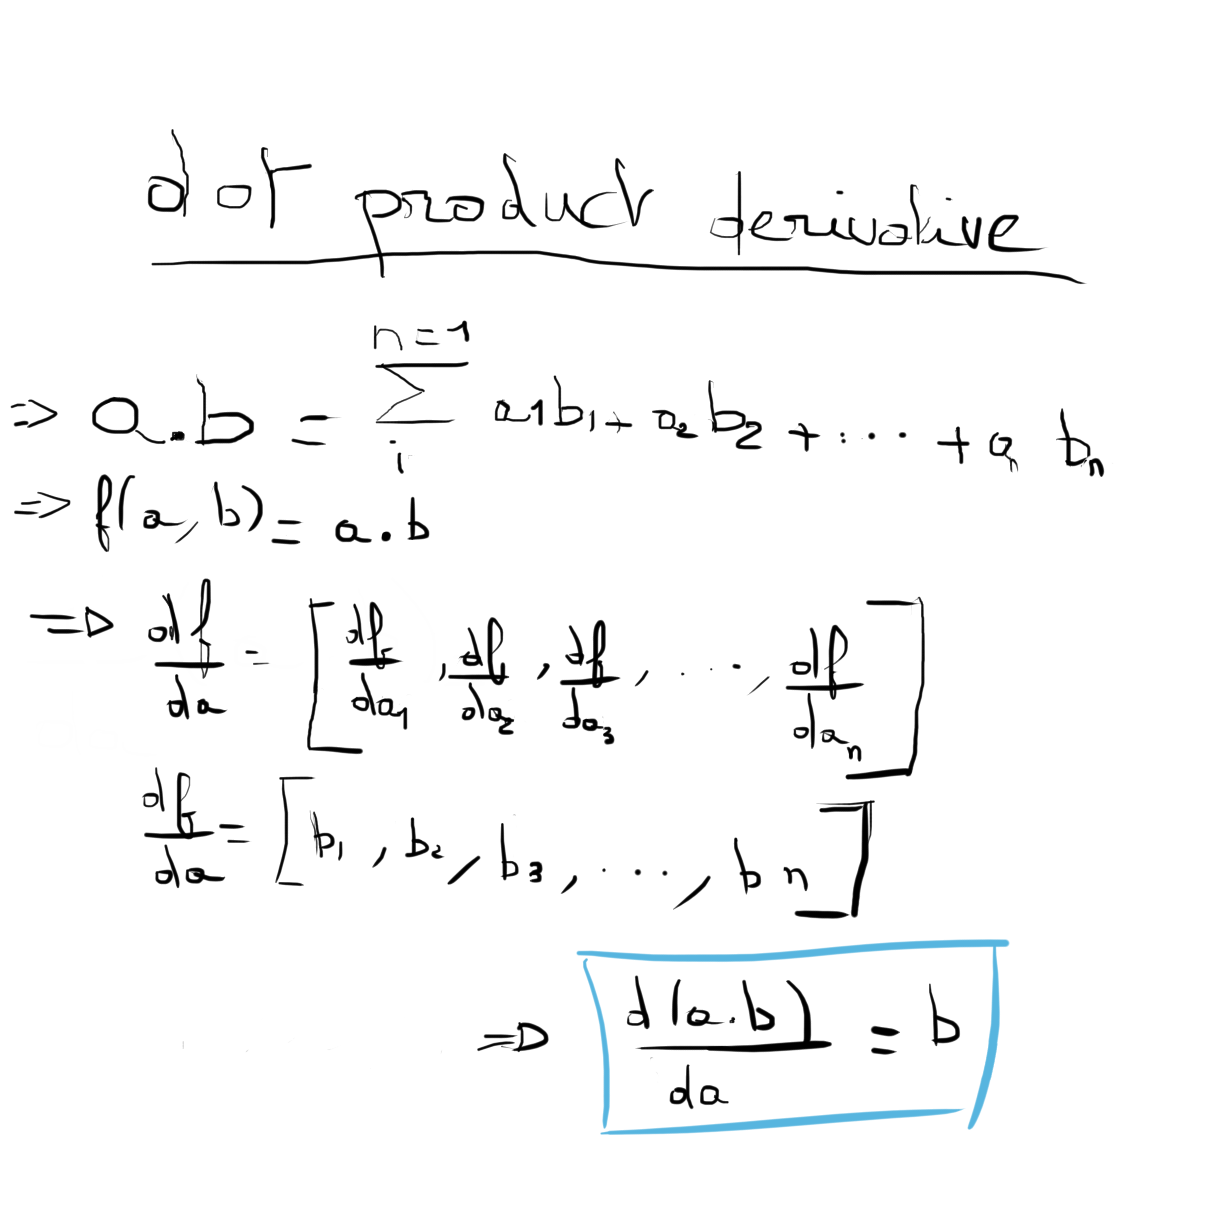 dot product derivative
n=1
=> a.b = Σ a1b₁ + a₂ b₂ + . ... + aₙ bₙ
i
=> f(a, b) = a.b
=> df/da = [df/da₁, df/da₂, df/da₃, ..., df/daₙ]
df/da = [b₁, b₂, b₃, ..., b n]
=> d(a.b)/da = b